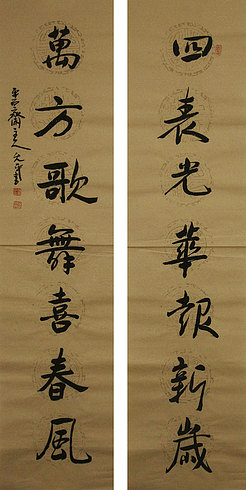 四表光華報新歲
萬方歌舞喜春風